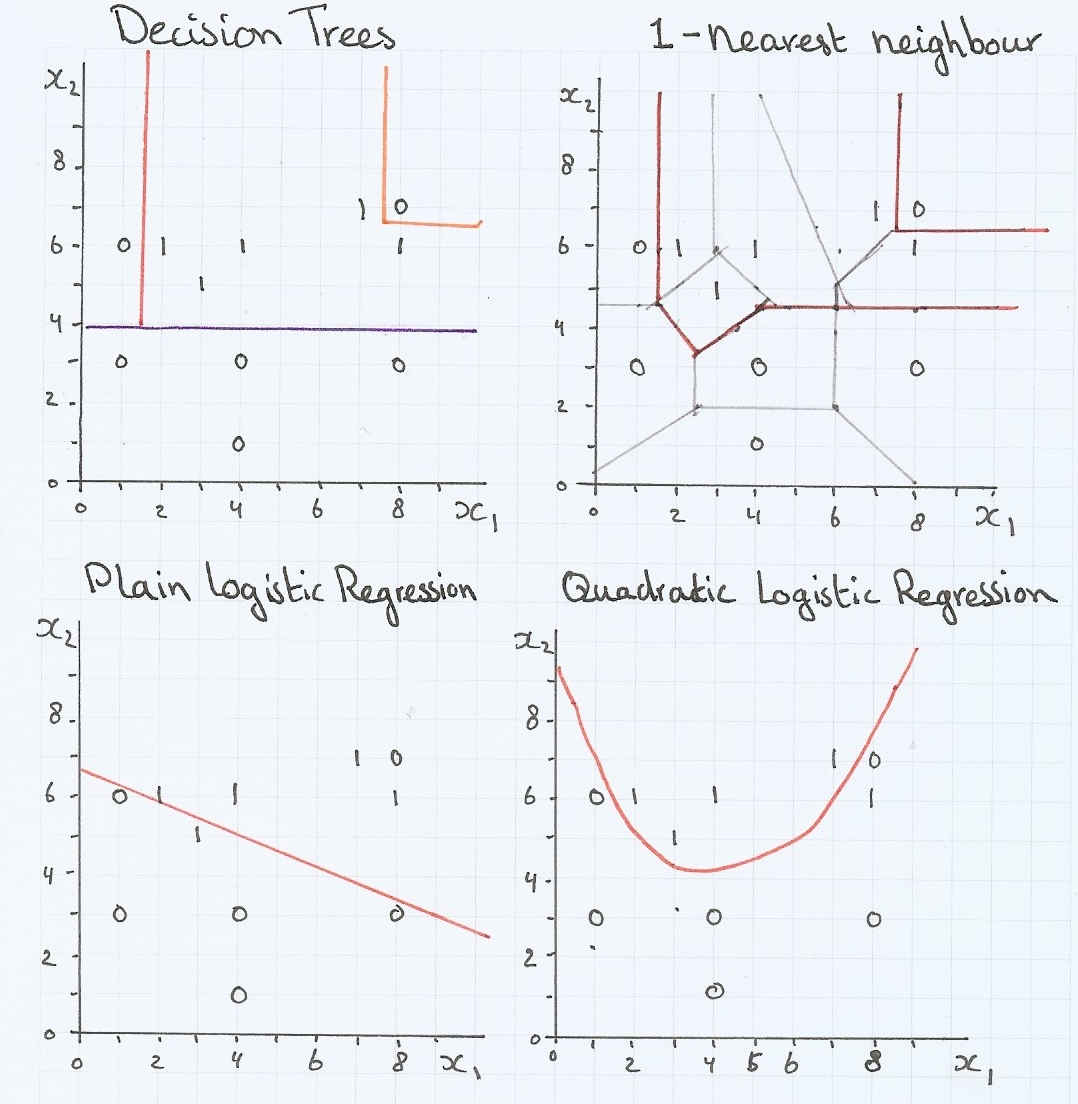 Decision Trees
x₂
8
1 0
6 0 1 1 1
1
4
0 0 0
2
0
0
0 2 4 6 8 x₁
1-nearest neighbour
x₂
8
1 0
6 0 1 1 1
1
4
0 0 0
2
0
0
0 2 4 6 8 x₁
Plain Logistic Regression
x₂
8
1 0
6 0 1 1 1
1
4
0 0 0
2
0
0
0 2 4 6 8 x₁
Quadratic Logistic Regression
x₂
8
1 0
6 0 1 1 1
1
4
0 0 0
2
0
0
0 2 4 5 6 8 x₁